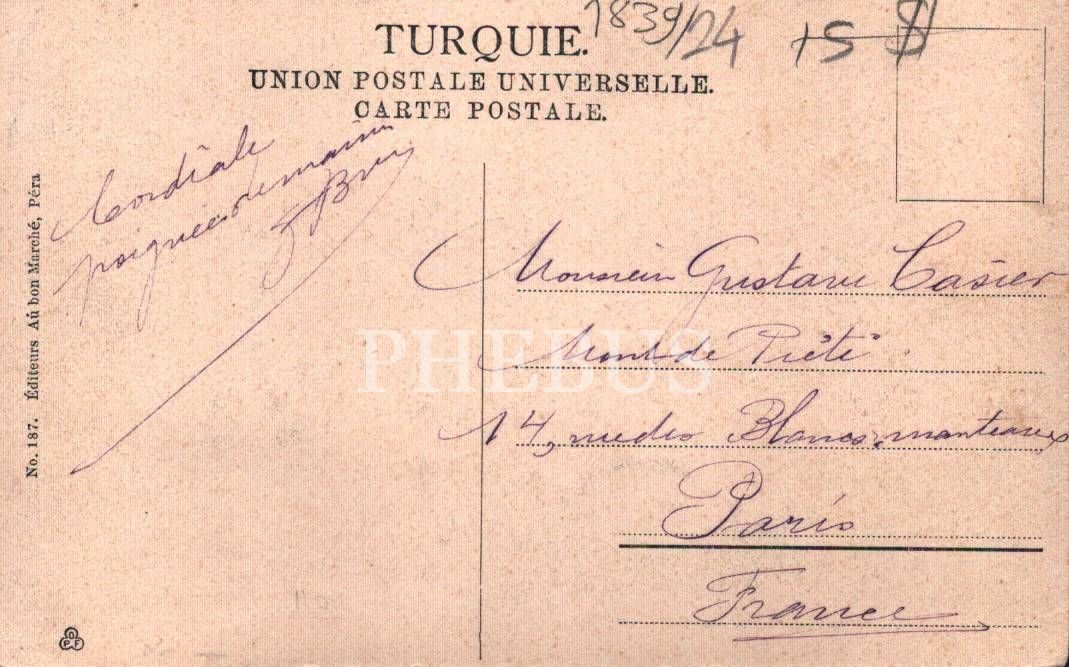 1839/124 15 $
TURQUIE.
UNION POSTALE UNIVERSELLE.
CARTE POSTALE.
Cordiale
poignée de main
No. 187. Éditeurs Aù bon Marché, Péra
Monsieur Gustave Casier
Mont de Piété
14, rue des Blancs-manteaux
Paris
France
PHEBUS
OPF